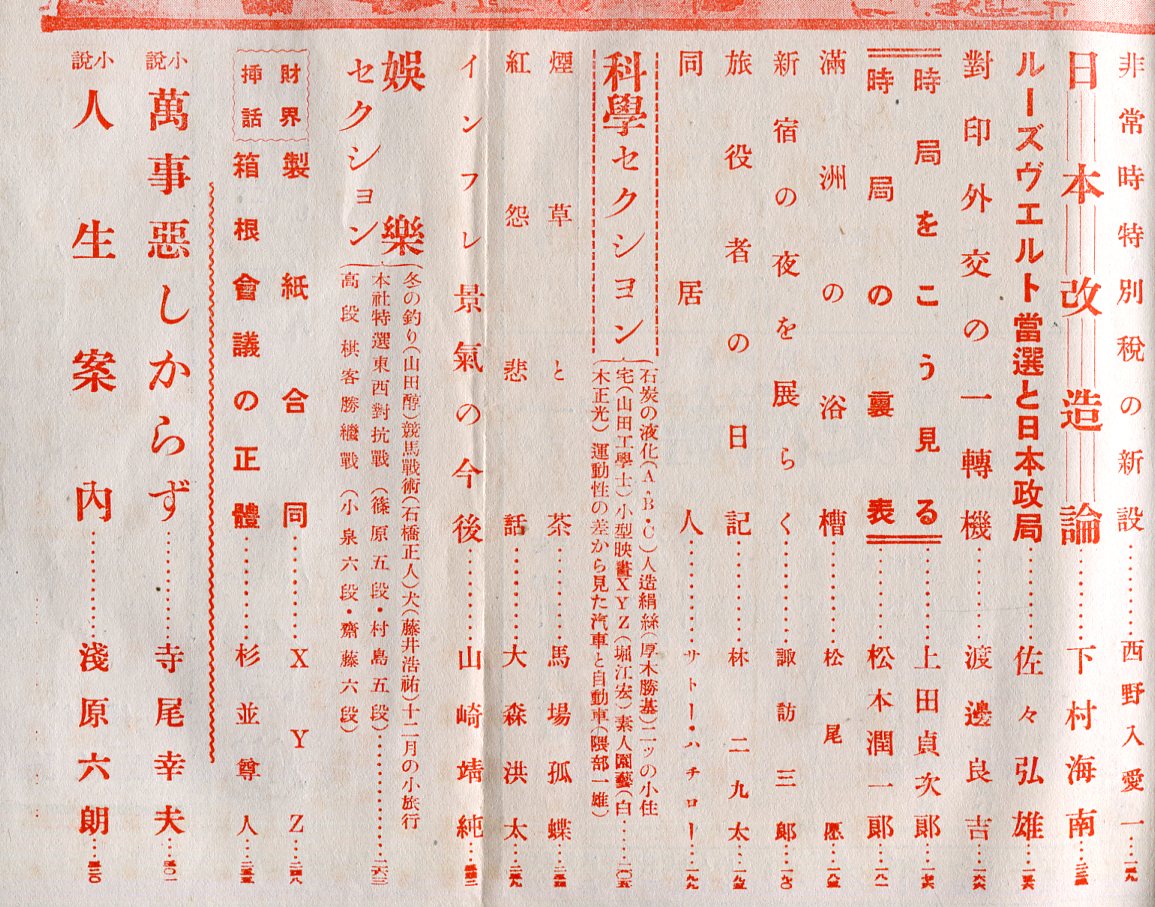 非常時特別税の新設…………西野入愛一…一五九
日本改造論…………下村海南
ルーズヴエルト當選と日本政局…………佐々弘雄
對印外交の一轉機…………渡邊良吉…一六六
時局をこう見る…………上田貞次郞
時局の裏表…………松本潤一郞…一八一
滿洲の浴槽…………松尾
新宿の夜を展らく…………諏訪三郞…一九〇
旅役者の日記…………林二九太
同居人…………サトー・ハチロー…一九九
科學セクシヨン
石炭の液化(A・B・C)人造絹絲(厚木勝基)二ッの小住
宅(山田工學士)小型映畫XYZ(堀江宏)素人園藝(白
木正光)運動性の差から見た汽車と自動車(隈部一雄)
煙草と茶…………馬場孤蝶
紅怨悲話…………大森洪太
インフレ景氣の今後…………山崎靖純
娯樂セクシヨン
冬の釣り(山田醇)競馬戰術(石橋正人)犬(藤井浩祐)十二月の小旅行
本社特選東西對抗戰(篠原五段・村島五段)…………一六三
高段棋客勝繼戰(小泉六段・齋藤六段)
財界挿話
製紙合同…………XYZ
箱根會議の正體…………杉並尊人
小說 萬事惡しからず…………寺尾幸夫
小說 人生案內…………淺原六朗